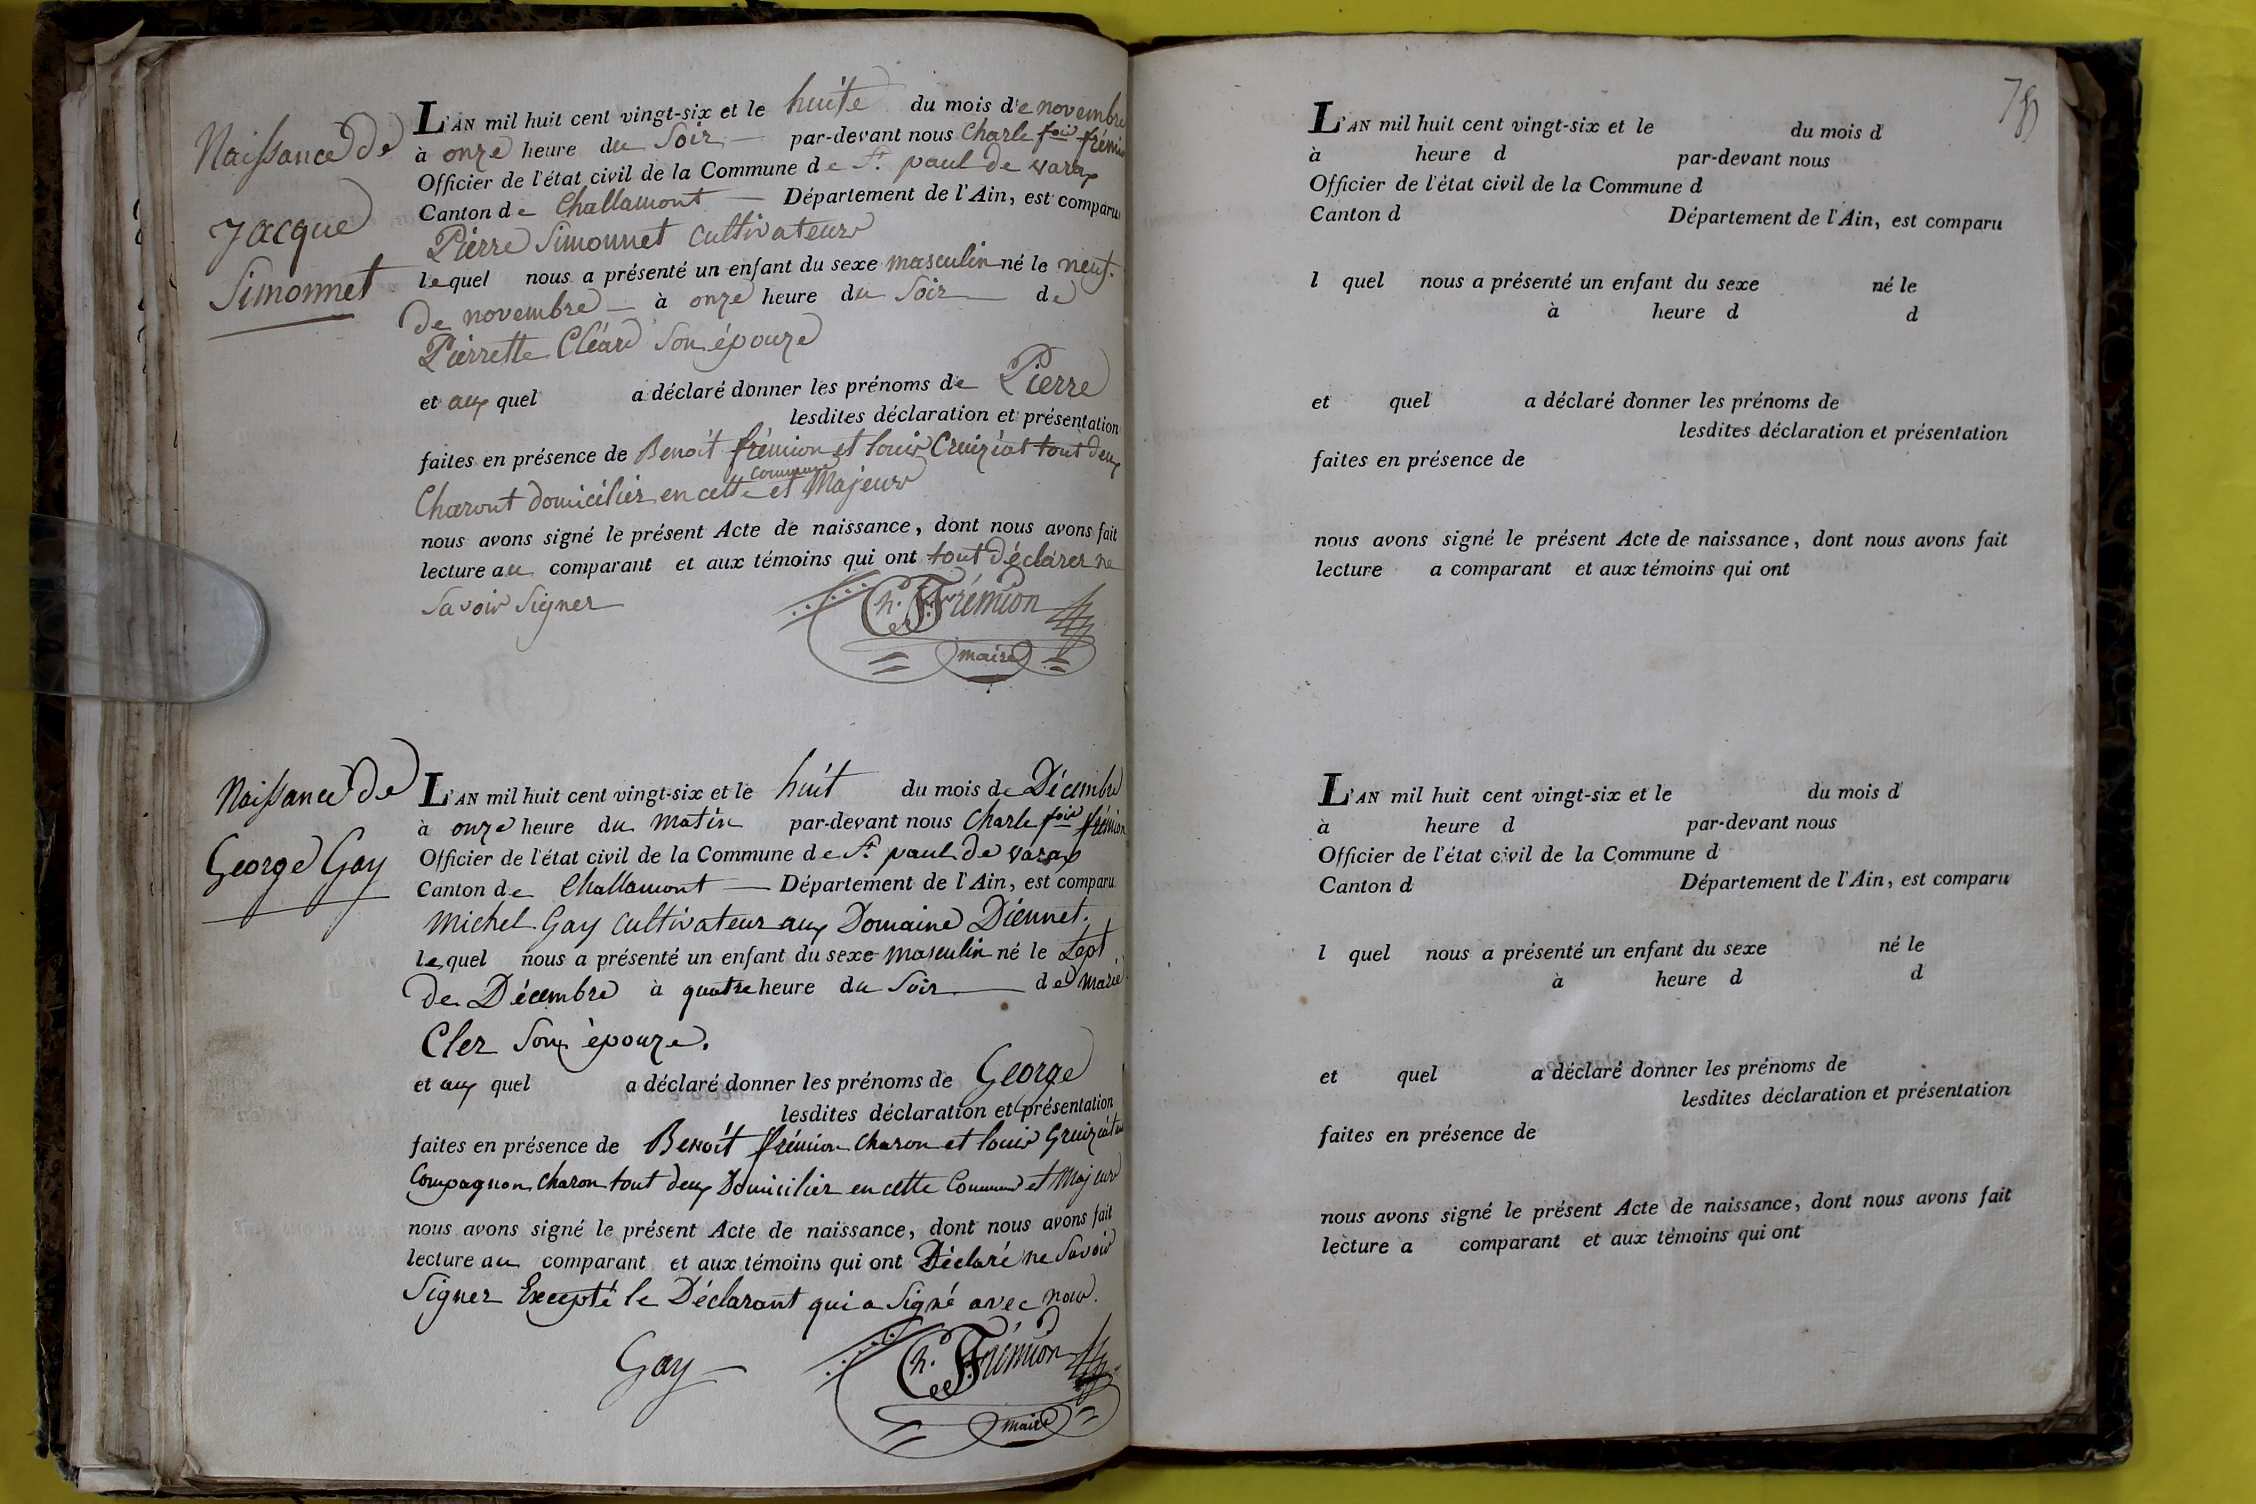 Naissance de
Jacque
Simonnet
L'AN mil huit cent vingt-six et le huite du mois de novembre
à onze heure du Soir par-devant nous Charle fois frémion
Officier de l'état civil de la Commune de St paul de varax
Canton de Challamont Département de l'Ain, est comparu
Pierre Simonnet cultivateur
lequel nous a présenté un enfant du sexe masculin né le neuf
de novembre à onze heure du Soir de
Pierrette Cléard Son épouze
et aux quel a déclaré donner les prénoms de Pierre
lesdites déclaration et présentation
faites en présence de Benoit frémion et louis Cruiziat tout deux
commune
Charont domicilier en cette et Majeur
nous avons signé le présent Acte de naissance, dont nous avons fait
lecture au comparant et aux témoins qui ont tout déclarer ne
Savoir Signer
Ch. F. Frémion
maire
Naissance de
George Gay
L'AN mil huit cent vingt-six et le huit du mois de Décembre
à onze heure du matin par-devant nous Charle fois frémion
Officier de l'état civil de la Commune de St paul de varax
Canton de Challamont Département de l'Ain, est comparu
Michel Gay cultivateur aux Domaine Diennet.
lequel nous a présenté un enfant du sexe masculin né le Sept
de Décembre à quatre heure du Soir de Marie
Cler Son épouze.
et aux quel a déclaré donner les prénoms de George
lesdites déclaration et présentation
faites en présence de Benoit frémion charon et louis Gruiziat
Compagnon charon tout deux Domicilier en cette Commune et Majeur
nous avons signé le présent Acte de naissance, dont nous avons fait
lecture au comparant et aux témoins qui ont Déclaré ne Savoir
Signer Excepté le Déclarant qui a Signé avec nous.
Gay
Ch. F. Frémion
maire
L'AN mil huit cent vingt-six et le du mois d
à heure d par-devant nous
Officier de l'état civil de la Commune d
Canton d Département de l'Ain, est comparu
l quel nous a présenté un enfant du sexe né le
à heure d d
et quel a déclaré donner les prénoms de
lesdites déclaration et présentation
faites en présence de
nous avons signé le présent Acte de naissance, dont nous avons fait
lecture a comparant et aux témoins qui ont
L'AN mil huit cent vingt-six et le du mois d
à heure d par-devant nous
Officier de l'état civil de la Commune d
Canton d Département de l'Ain, est comparu
l quel nous a présenté un enfant du sexe né le
à heure d d
et quel a déclaré donner les prénoms de
lesdites déclaration et présentation
faites en présence de
nous avons signé le présent Acte de naissance, dont nous avons fait
lecture a comparant et aux témoins qui ont